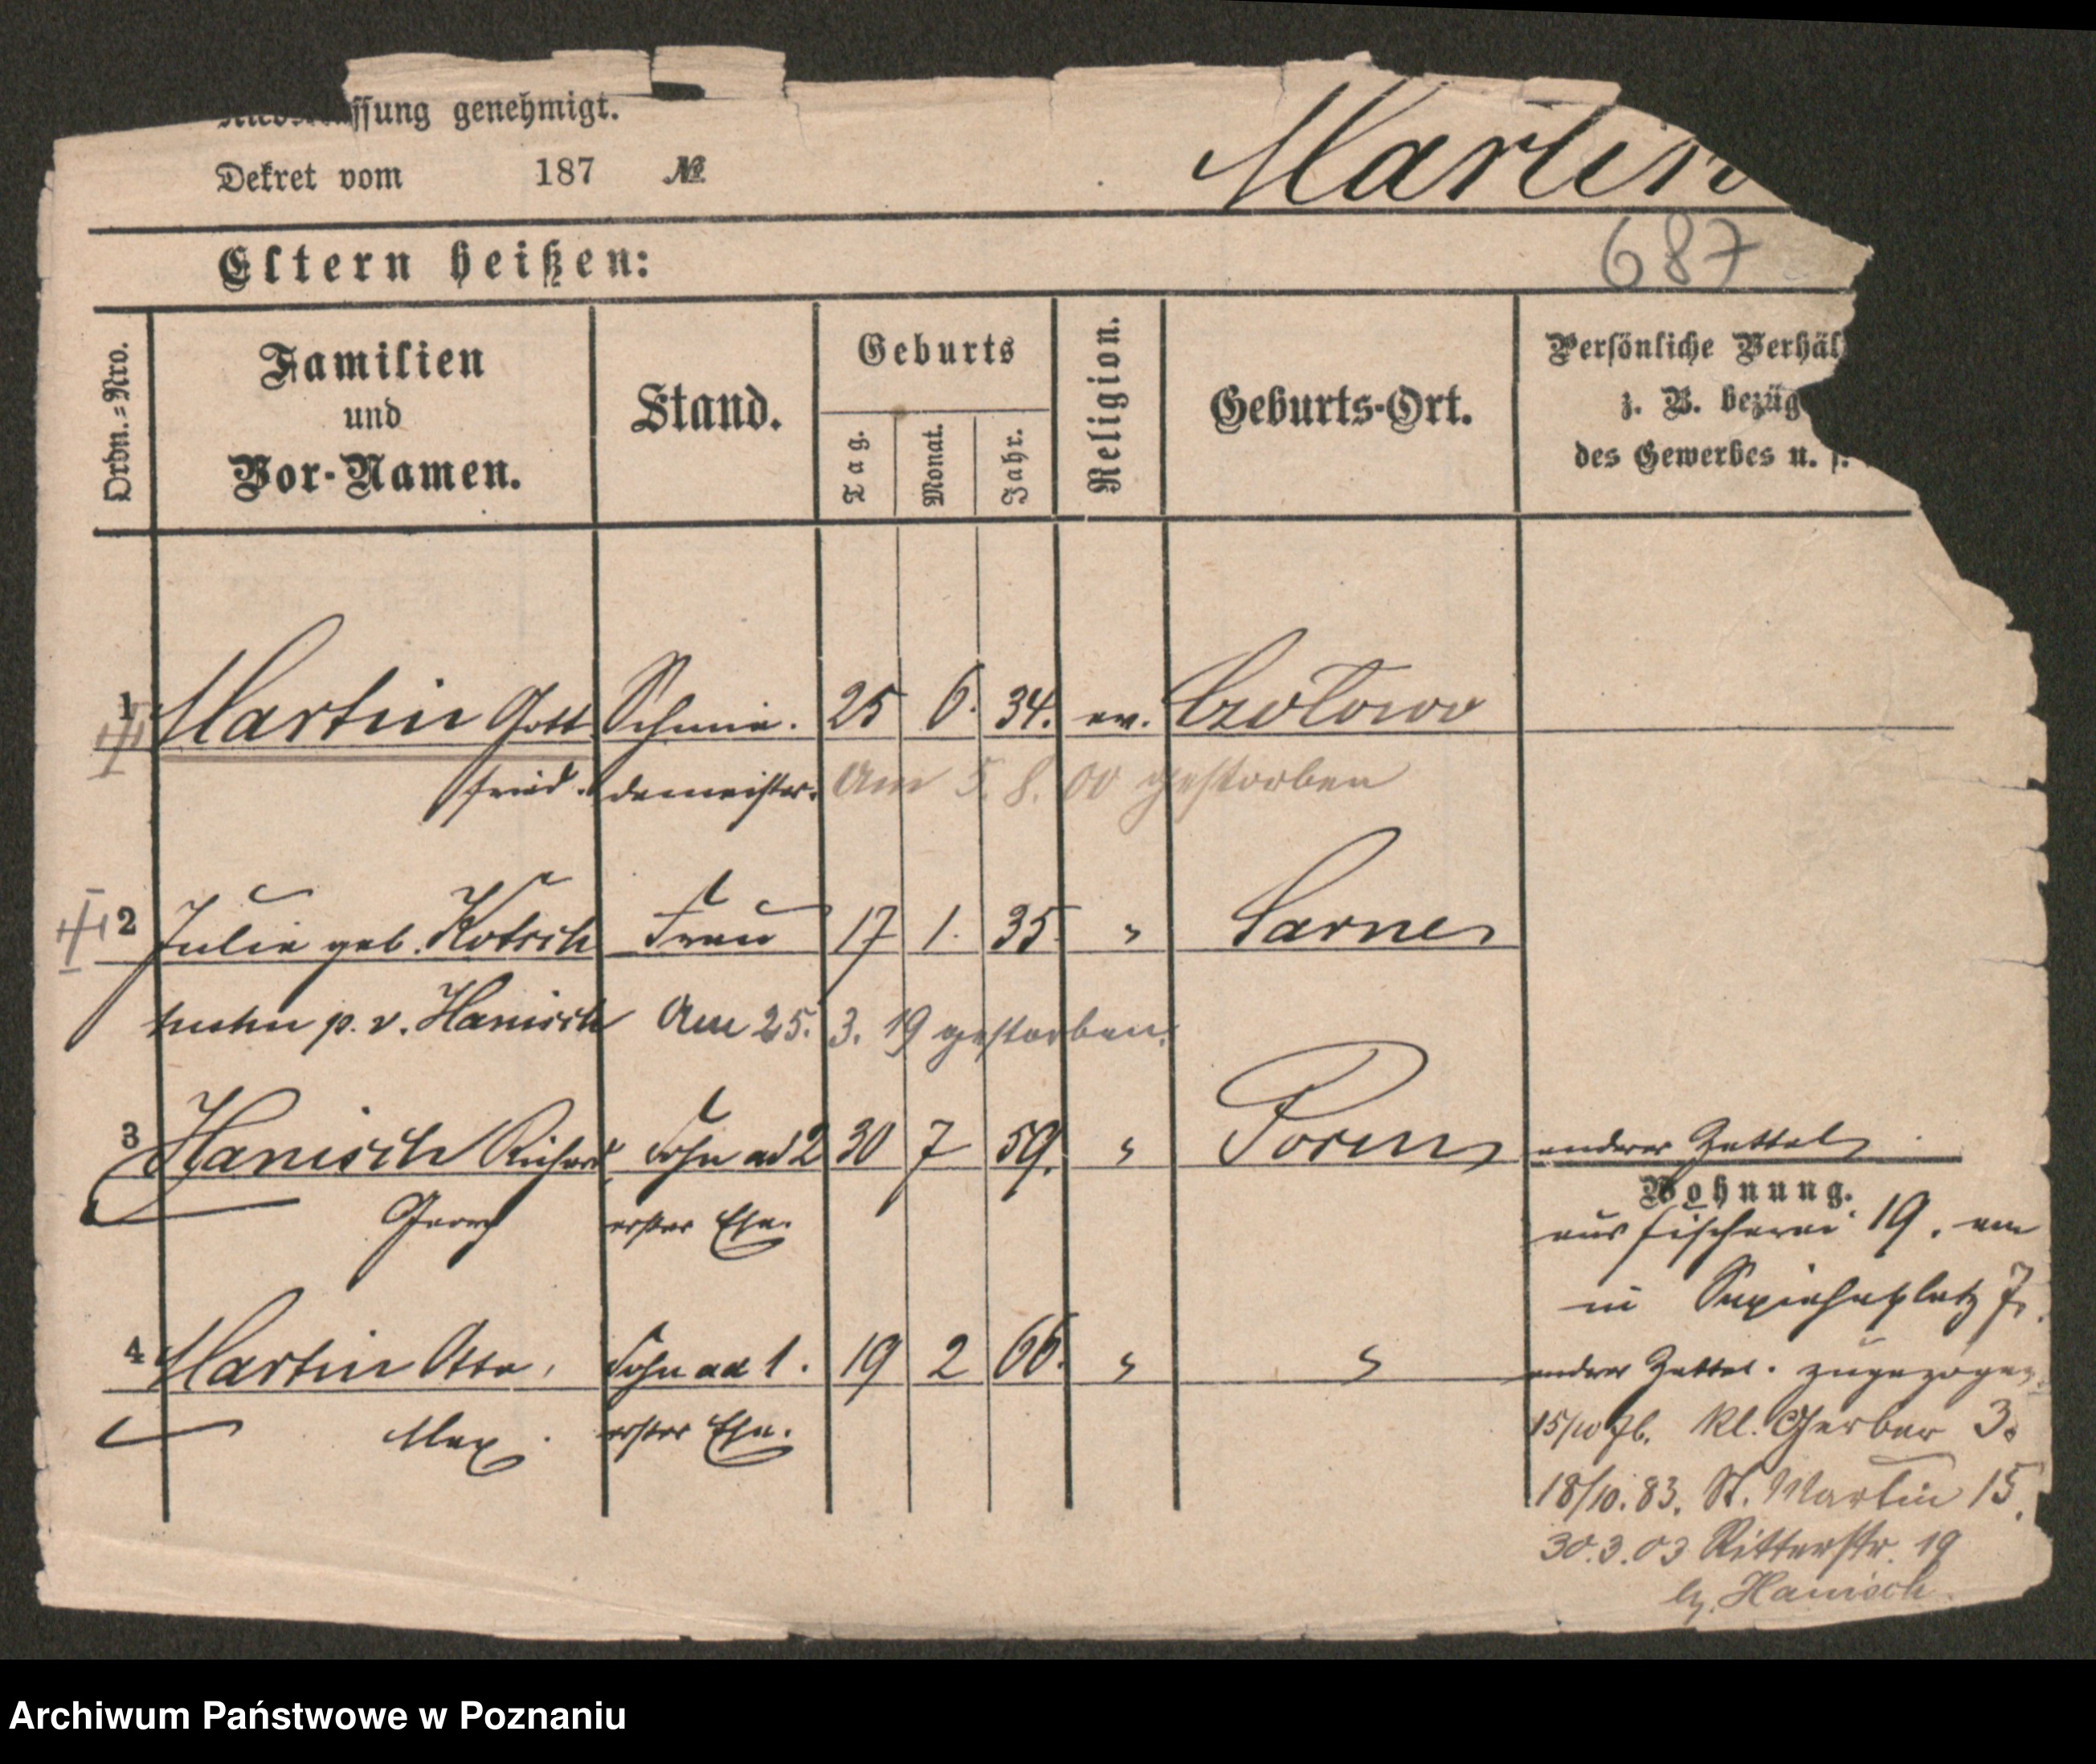 ssung genehmigt.
Dekret vom 187 №
Martin
687
Eltern heißen:
Ordn.=Nro.
Familien
und
Vor-Namen.
Stand.
Geburts
Tag.
Monat.
Jahr.
Religion.
Geburts-Ort.
Persönliche Verhäl
z. B. bezüg
des Gewerbes u. s.
1 Martin Gott Schmie. 25 6. 34. ev. Czołowo
fried. demeister. Am 5. 8. 00 gestorben
2 Julie geb. Kotsch Frau 17 1. 35. " Sarne
p. v. Hanisch Am 25. 3. 19 gestorben.
3 Hanisch Richard Sohn ad 2 30 7 59. " Posen anderer Zettel
Georg erster Ehe.
Wohnung.
aus Fischerei 19. am
in Sapiehaplatz 7.
4 Martin Otto, Sohn ad 1. 19 2 66. " " anderer Zettel. zugezogen
Max. erster Ehe.
15/10 kl. Gerber 3.
18/10. 83. St. Martin 15.
30.3.03 Ritterstr. 19
b/. Hanisch.
Archiwum Państwowe w Poznaniu